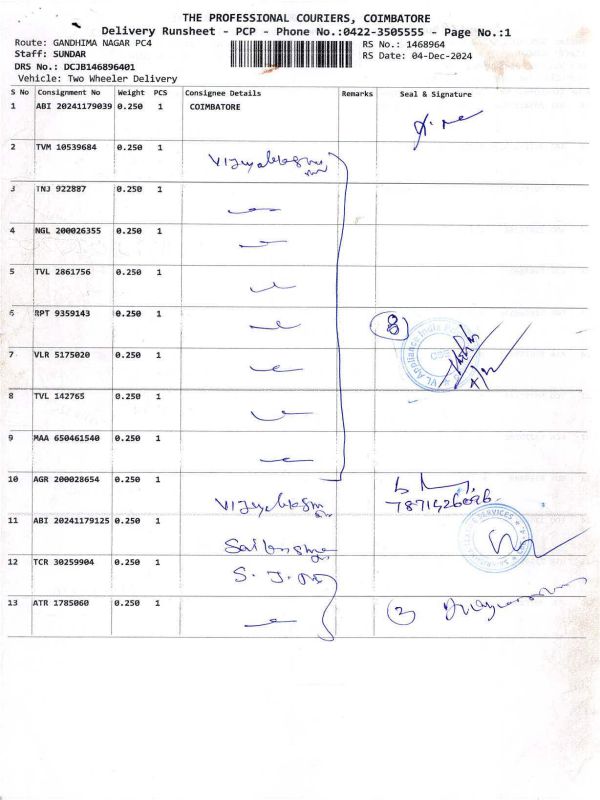 THE PROFESSIONAL COURIERS, COIMBATORE
Delivery Runsheet - PCP - Phone No.:0422-3505555 - Page No.:1
Route: GANDHIMA NAGAR PC4
RS No.: 1468964
Staff: SUNDAR
RS Date: 04-Dec-2024
DRS No.: DCJB146896401
Vehicle: Two Wheeler Delivery
S No Consignment No Weight PCS Consignee Details Remarks Seal & Signature
1 ABI 20241179039 0.250 1 COIMBATORE
2 TVM 10539684 0.250 1
3 TNJ 922887 0.250 1
4 NGL 200026355 0.250 1
5 TVL 2861756 0.250 1
6 RPT 9359143 0.250 1 8
7 VLR 5175020 0.250 1
8 TVL 142765 0.250 1
9 MAA 650461540 0.250 1
10 AGR 200028654 0.250 1
11 ABI 20241179125 0.250 1
12 TCR 30259904 0.250 1
13 ATR 1785060 0.250 1